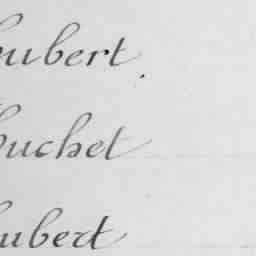 ubert.
uchet
ubert